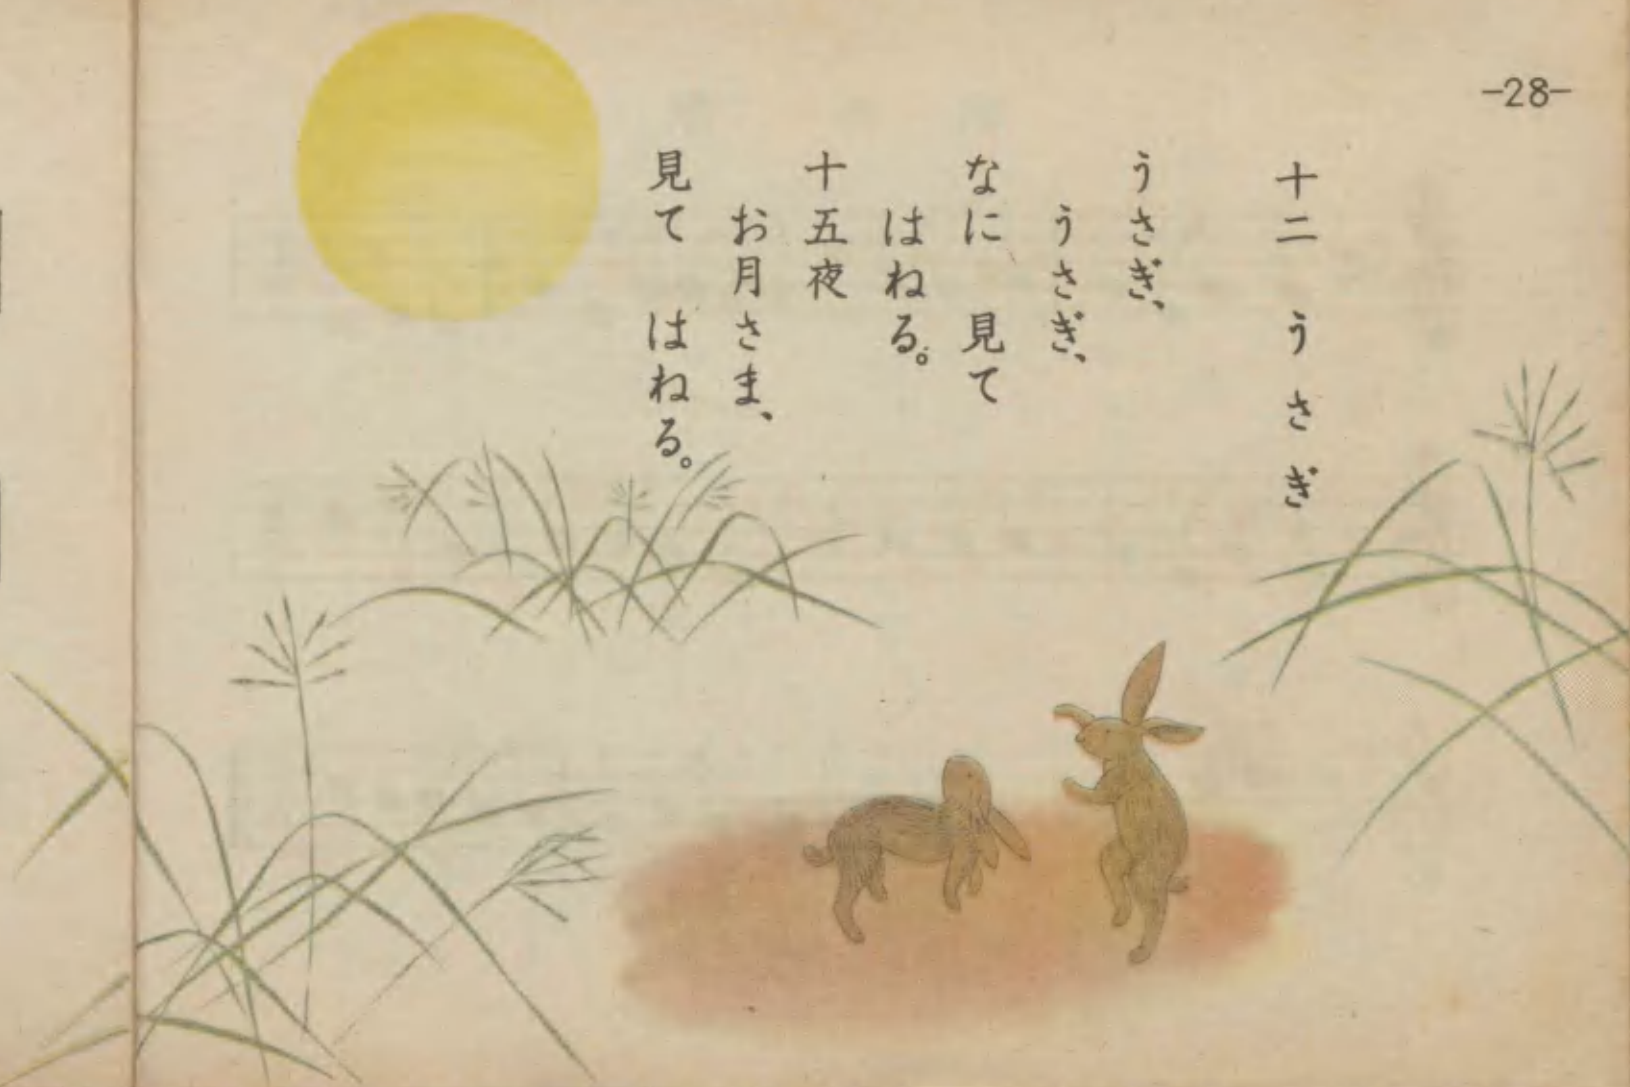 -28-
十二 うさぎ
うさぎ、
うさぎ、
なに 見て
はねる。
十五夜
お月さま、
見て はねる。